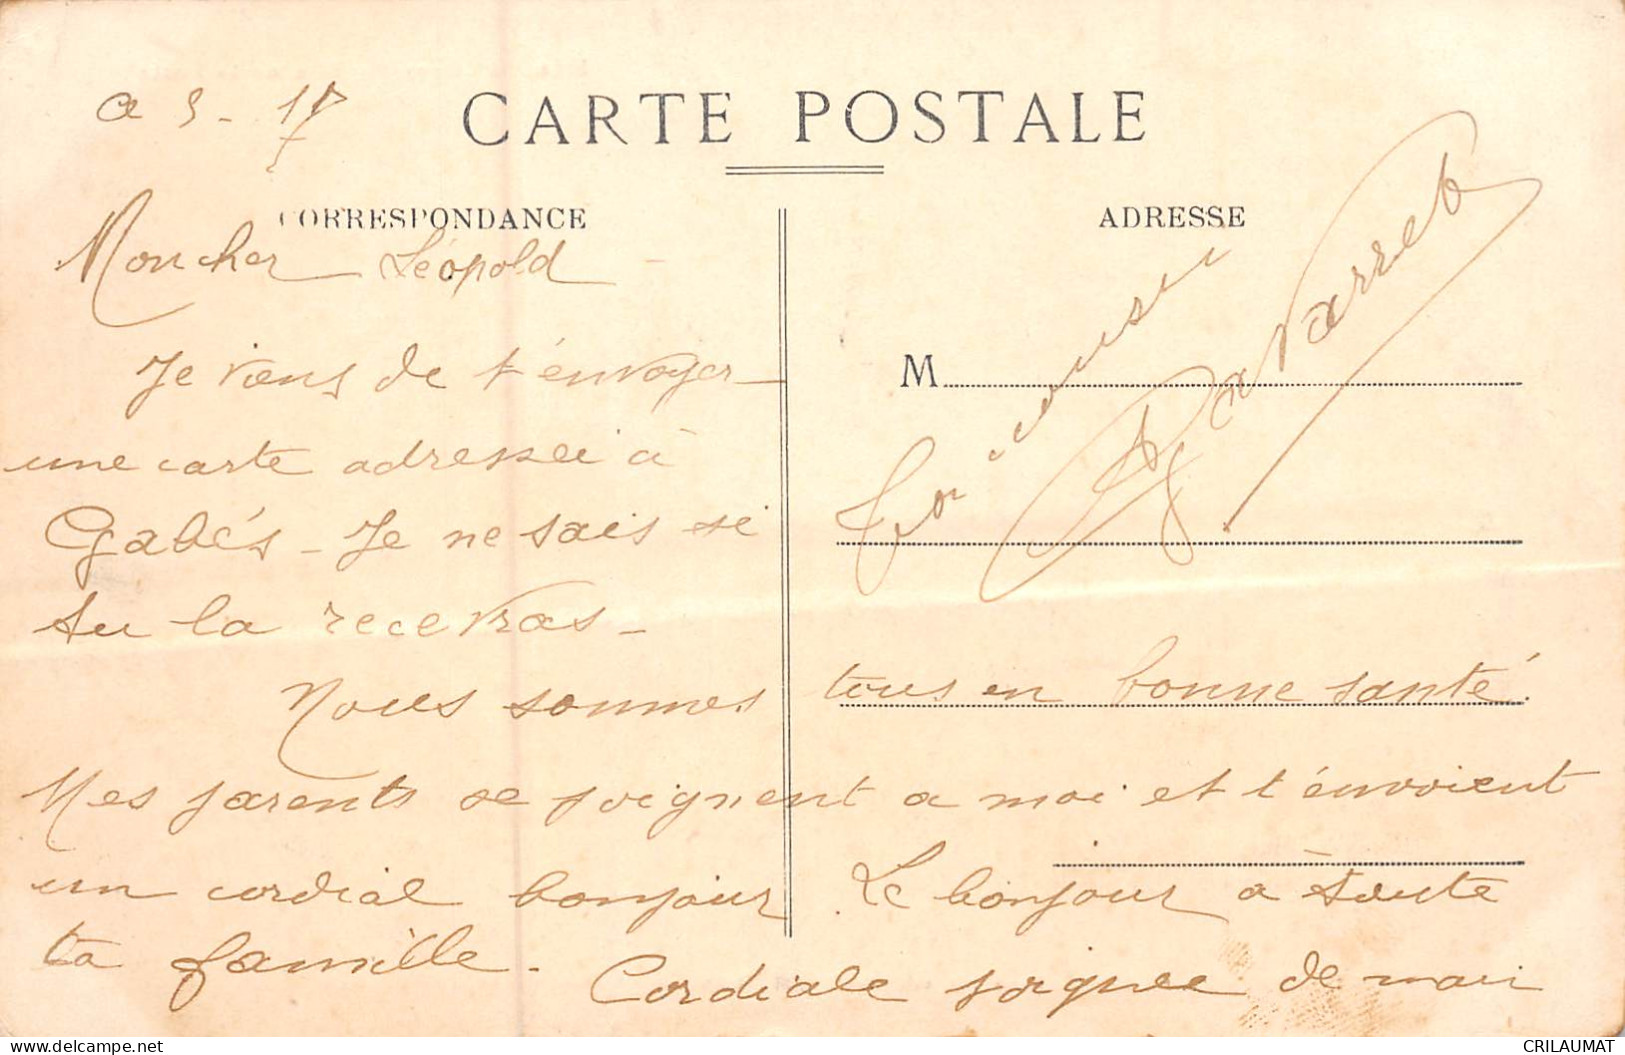 CARTE POSTALE
CORRESPONDANCE
ADRESSE
M
Mon cher Léopold
Je viens de t'envoyer
une carte adressée à
Gabès - Je ne sais si
tu la recevras -
Nous sommes tous en bonne santé.
Mes parents se joignent a moi et t'envoient
un cordial bonjour Le bonjour à toute
ta famille.
Cordiale poignée de main
Ton cousin
Navarret
CRILAUMAT